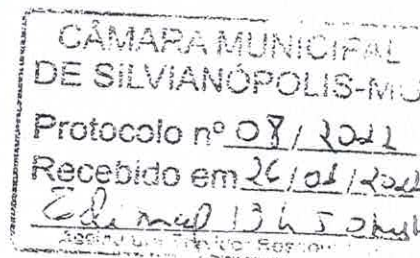 CÂMARA MUNICIPAL
DE SILVIANÓPOLIS-MG
Protocolo nº 08/2022
Recebido em 26/01/2022
13h50